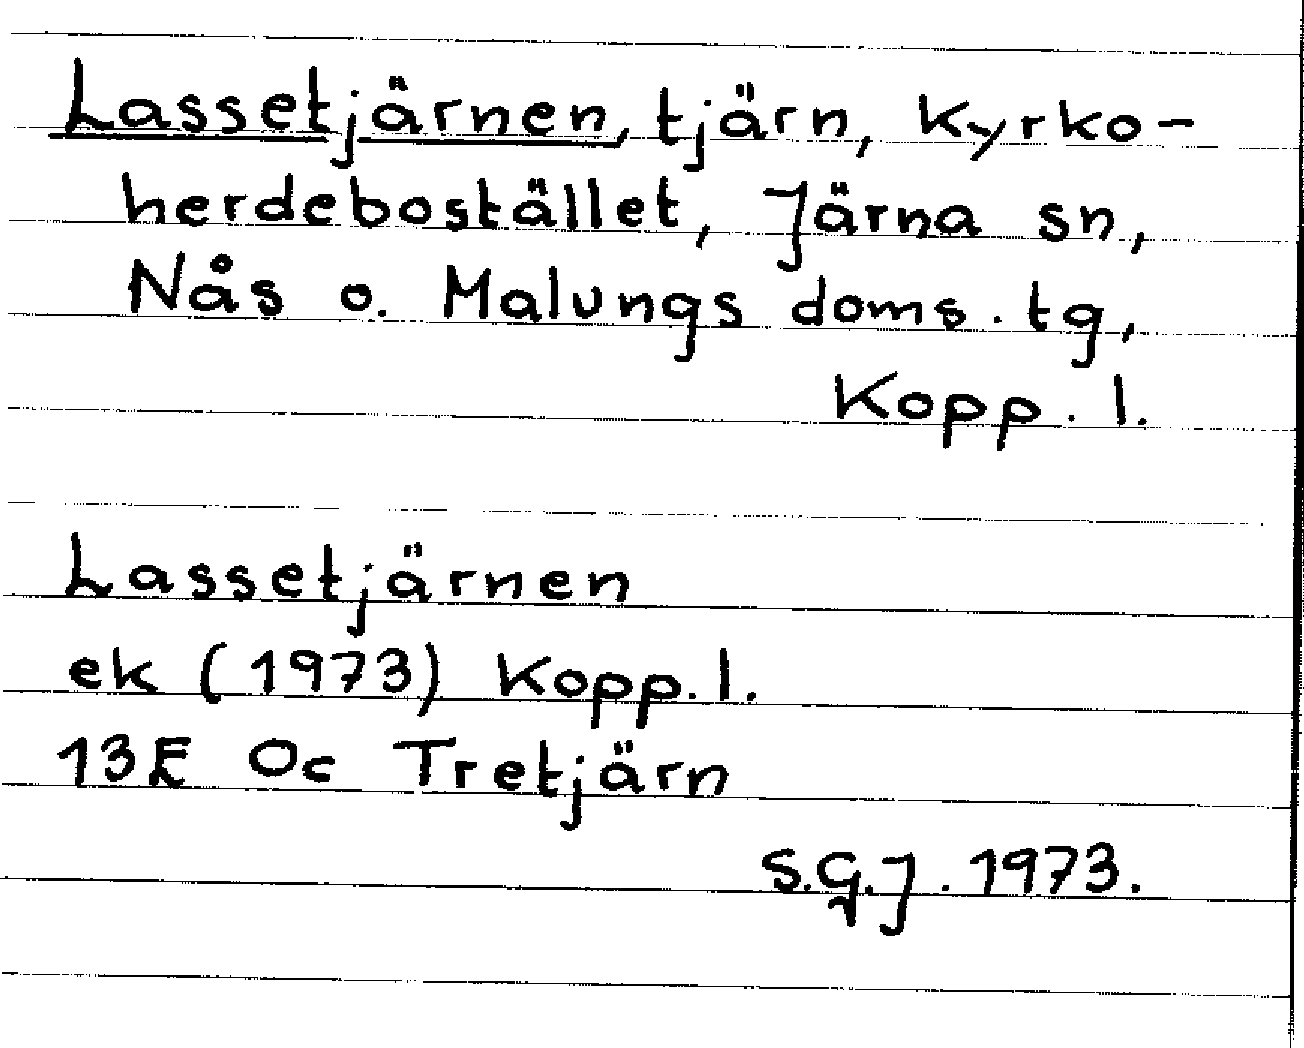 Lassetjärnen, tjärn, Kyrko-
herdebostället, Järna sn,
Nås o. Malungs doms. tg,
Kopp. l.
Lassetjärnen
ek (1973) Kopp. l.
13E Oc Tretjärn
S.G.J. 1973.